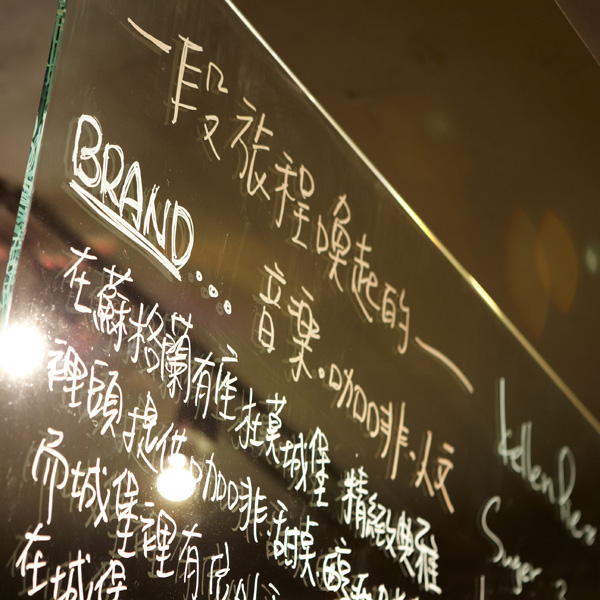 一段旅程喚起的一
BRAND....
音樂.咖啡.文
在蘇格蘭有座在莫城堡 精緻典雅
裡頭提供咖啡.甜桌
而城堡裡有
在城堡
Suger